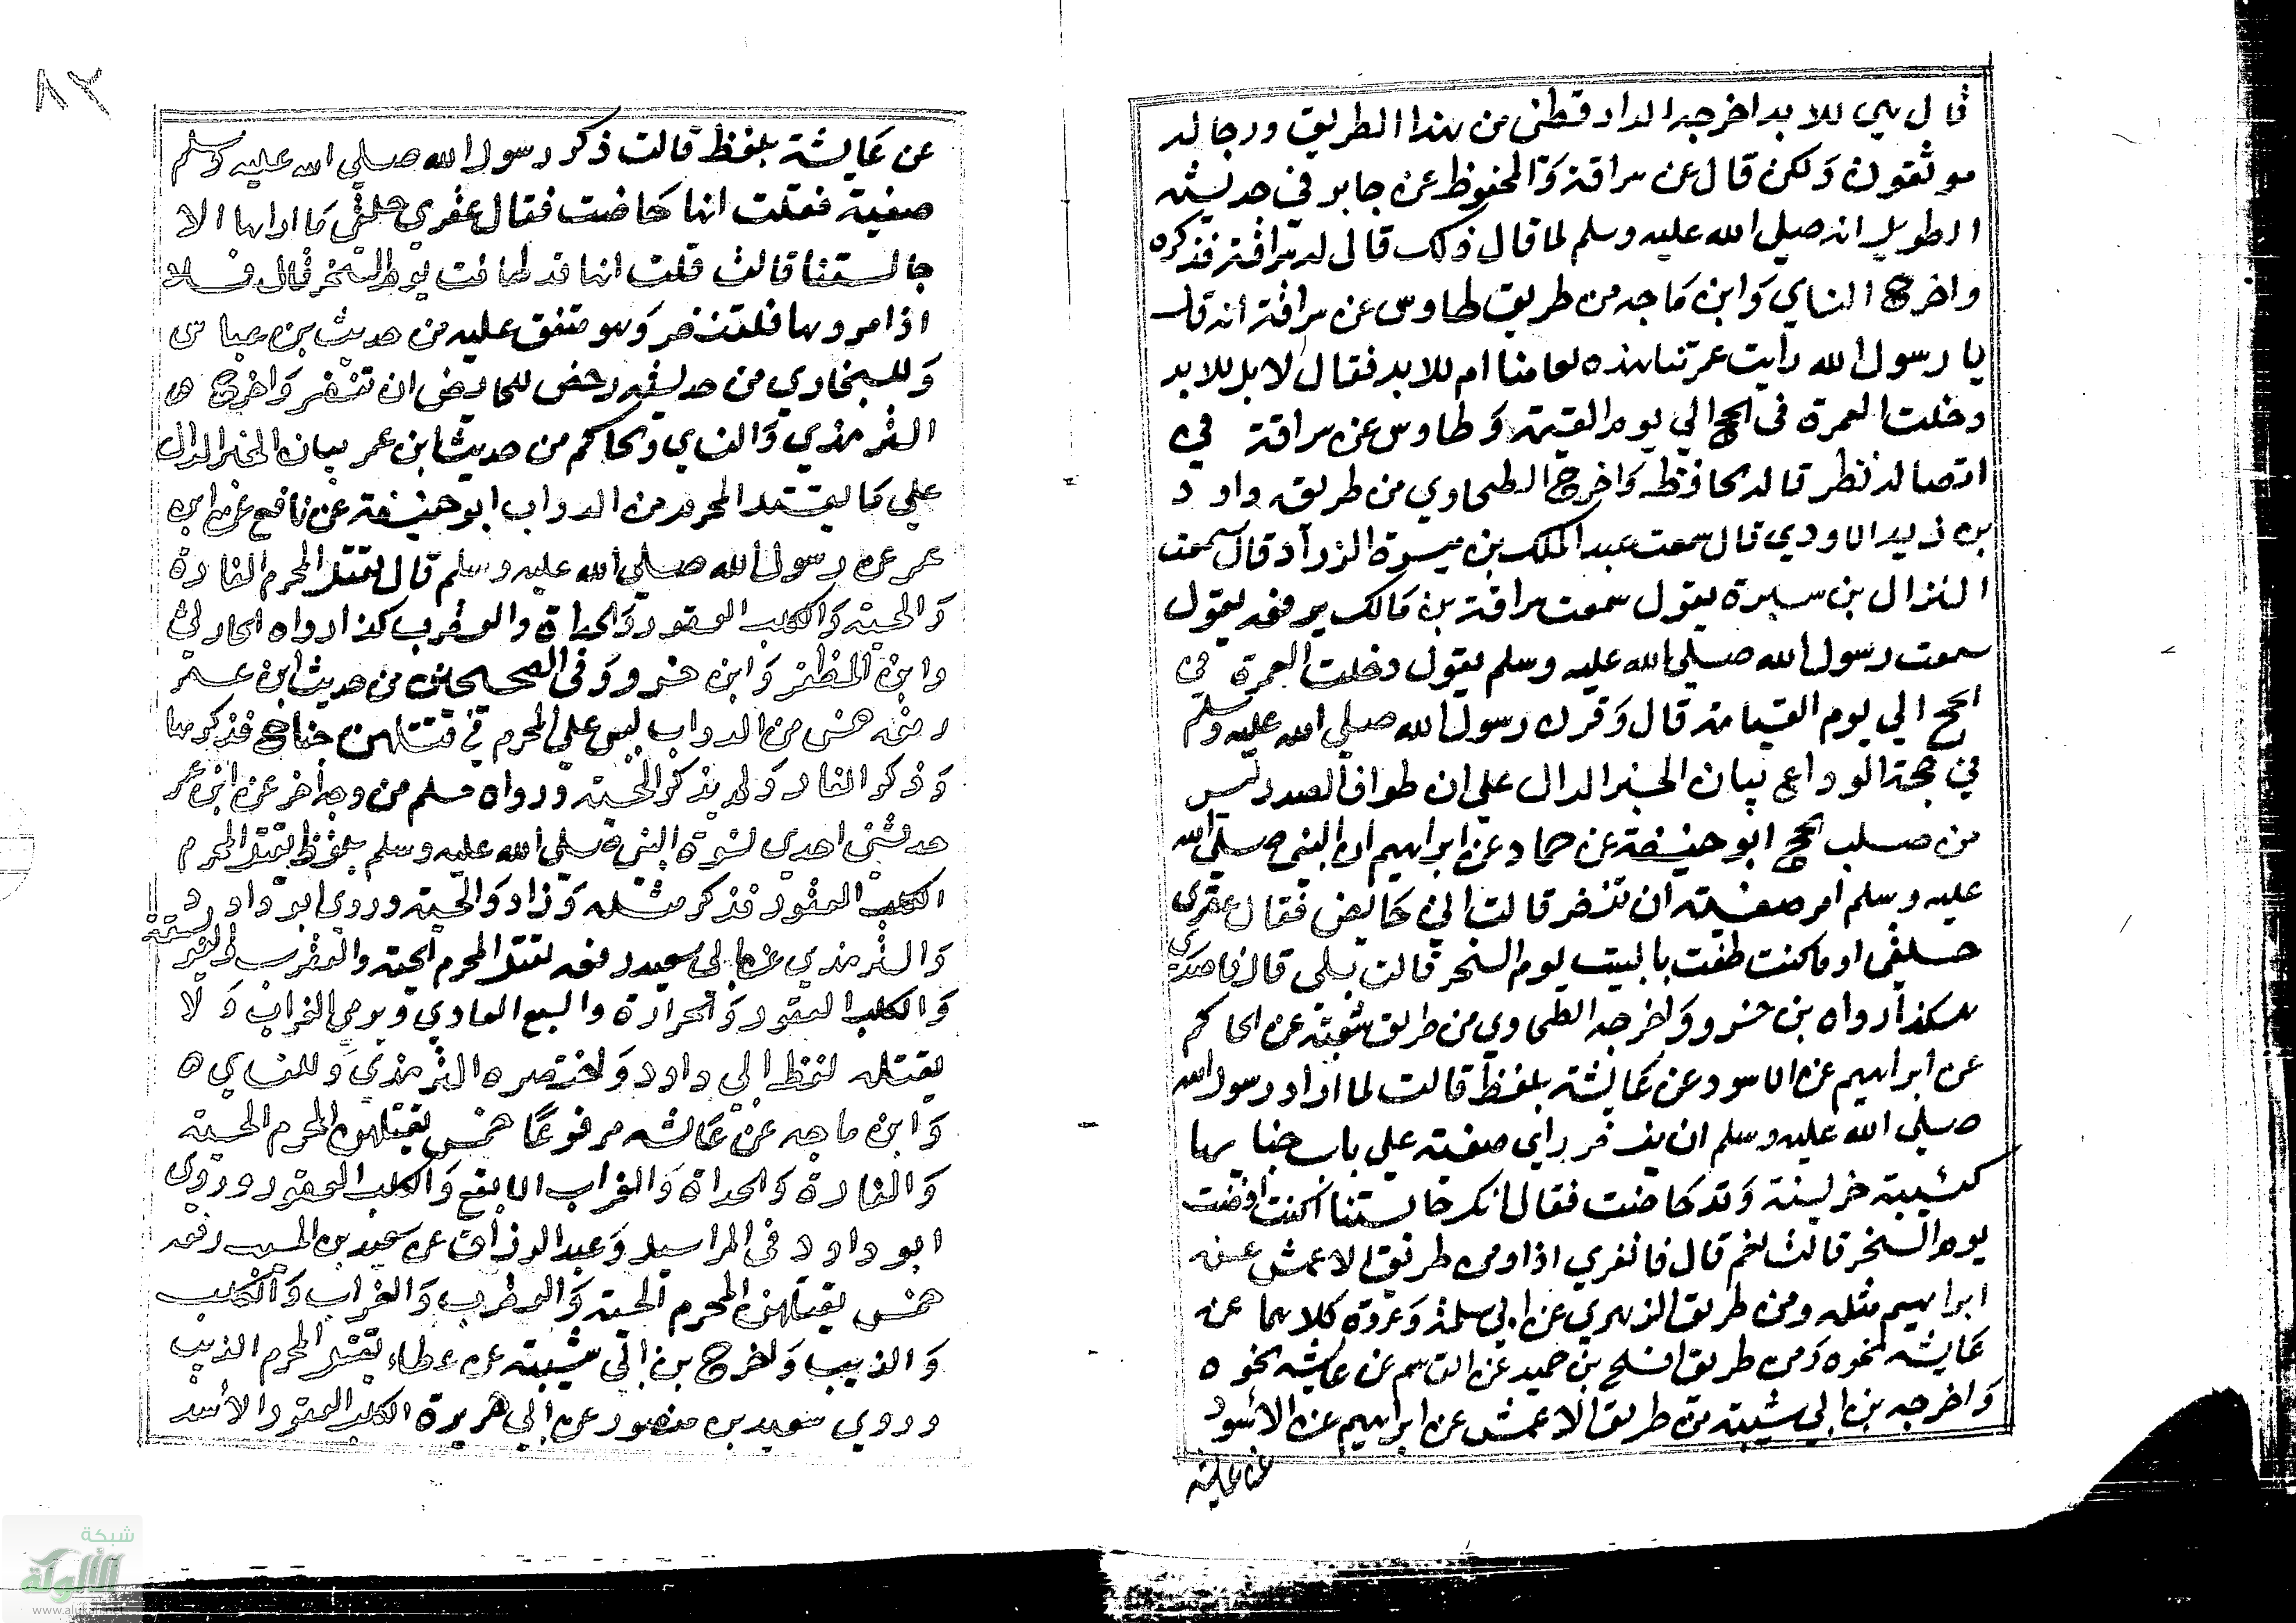 قال هي للابد اخرجه الدارقطني من هذا الطريق ورجاله
موثقون ولكن قال عن سراقة والمحفوظ عن جابر في حديثه
الطويل انه صلي الله عليه وسلم لما قال ذلك قال له سراقة فذكره
واخرج النساي وابن ماجه من طريق طاوس عن سراقة انه قال
يا رسول الله رايت عمرتنا هذه لعامنا ام للابد فقال لا بل للابد
دخلت العمرة في الحج الي يوم القيمة وطاوس عن سراقة في
اتصاله نظر قاله الحافظ واخرج الطحاوي من طريق داود
بن زيد الاودي قال سمعت عبد الملك بن ميسرة الزراد قال سمعت
النزال بن سبرة يقول سمعت سراقة بن مالك يرفعه يقول
سمعت رسول الله صلي الله عليه وسلم يقول دخلت العمرة في
الحج الي يوم القيامة قال وقرن رسول الله صلي الله عليه وسلم
في حجة الوداع بيان الخبر الدال علي ان طواف الصدر ليس
من صلب الحج ابو حنيفة عن حماد عن ابراهيم ان النبي صلي الله
عليه وسلم امر صفية ان تنفر قالت اني حايض فقال عقري
حلقي او ما كنت طفت بالبيت يوم النحر قالت بلي قال فاصدري
هكذا رواه بن خسرو واخرجه الطحاوي من طريق شعبة عن الحاكم
عن ابراهيم عن الاسود عن عايشة بلفظ قالت لما اراد رسول الله
صلي الله عليه وسلم ان ينفر راي صفية علي باب خبايها
كئيبة حزينة وقد حاضت فقال انك حابستنا اكنت افضت
يوم النحر قالت نعم قال فانفري اذا ومن طريق الاعمش عن
ابراهيم مثله ومن طريق الزهري عن ابي سلمة وعروة كلاهما عن
عايشه نحوه ومن طريق افلح بن حميد عن القاسم عن عايشه نحوه
واخرجه بن ابي شيبة من طريق الاعمش عن ابراهيم عن الاسود
عن عايشة
٨٢
عن عايشة بلفظ قالت ذكر رسول الله صلي الله عليه وسلم
صفية فقلت انها حاضت فقال عقري حلقي ما اراها الا
حابستنا قالت قلت انها قد طافت يوم النحر قال فلا
اذا مروها فلتنفر وهو متفق عليه من حديث بن عباس
وللبخاري من حديثه رخص للحايض ان تنفر واخرج
الترمذي والنساي والحاكم من حديث ابن عمر بيان الخبر الدال
علي ما يقتله المحرم من الدواب ابو حنيفة عن نافع عن ابن
عمر عن رسول الله صلي الله عليه وسلم قال يقتل المحرم الفارة
والحية والكلب العقور والحداة والعقرب كذا رواه الحارثي
وابن المظفر وابن خسرو وفي الصحيحين من حديث ابن عمر
رفعه خمس من الدواب ليس علي المحرم في قتلهن جناح فذكرها
وذكر الفار ولم يذكر الحية ورواه مسلم من وجه اخر عن ابن عمر
حدثتني احدي نسوة النبي صلي الله عليه وسلم بلفظ يقتل المحرم
الكلب العقور فذكر مثله وزاد والحية وروي ابو داود
والترمذي عن ابي سعيد رفعه يقتل المحرم الحية والعقرب والفويسقة
والكلب العقور والحداءة والسبع العادي ويرمي الغراب ولا
يقتله لفظ ابي داود واختصره الترمذي وللنساي
وابن ماجه عن عائشه مرفوعا خمس يقتلهن المحرم الحية
والفارة والحداة والغراب الابقع والكلب العقور وروي
ابو داود في المراسيل وعبد الرزاق عن سعيد بن المسيب رفعه
خمس يقتلهن المحرم الحية والعقرب والغراب والكلب
والذيب واخرج بن ابي شيبة عن عطاء يقتل المحرم الذيب
وروي سعيد بن منصور عن ابي هريرة الكلب العقور الاسد
شبكة
الألوكة